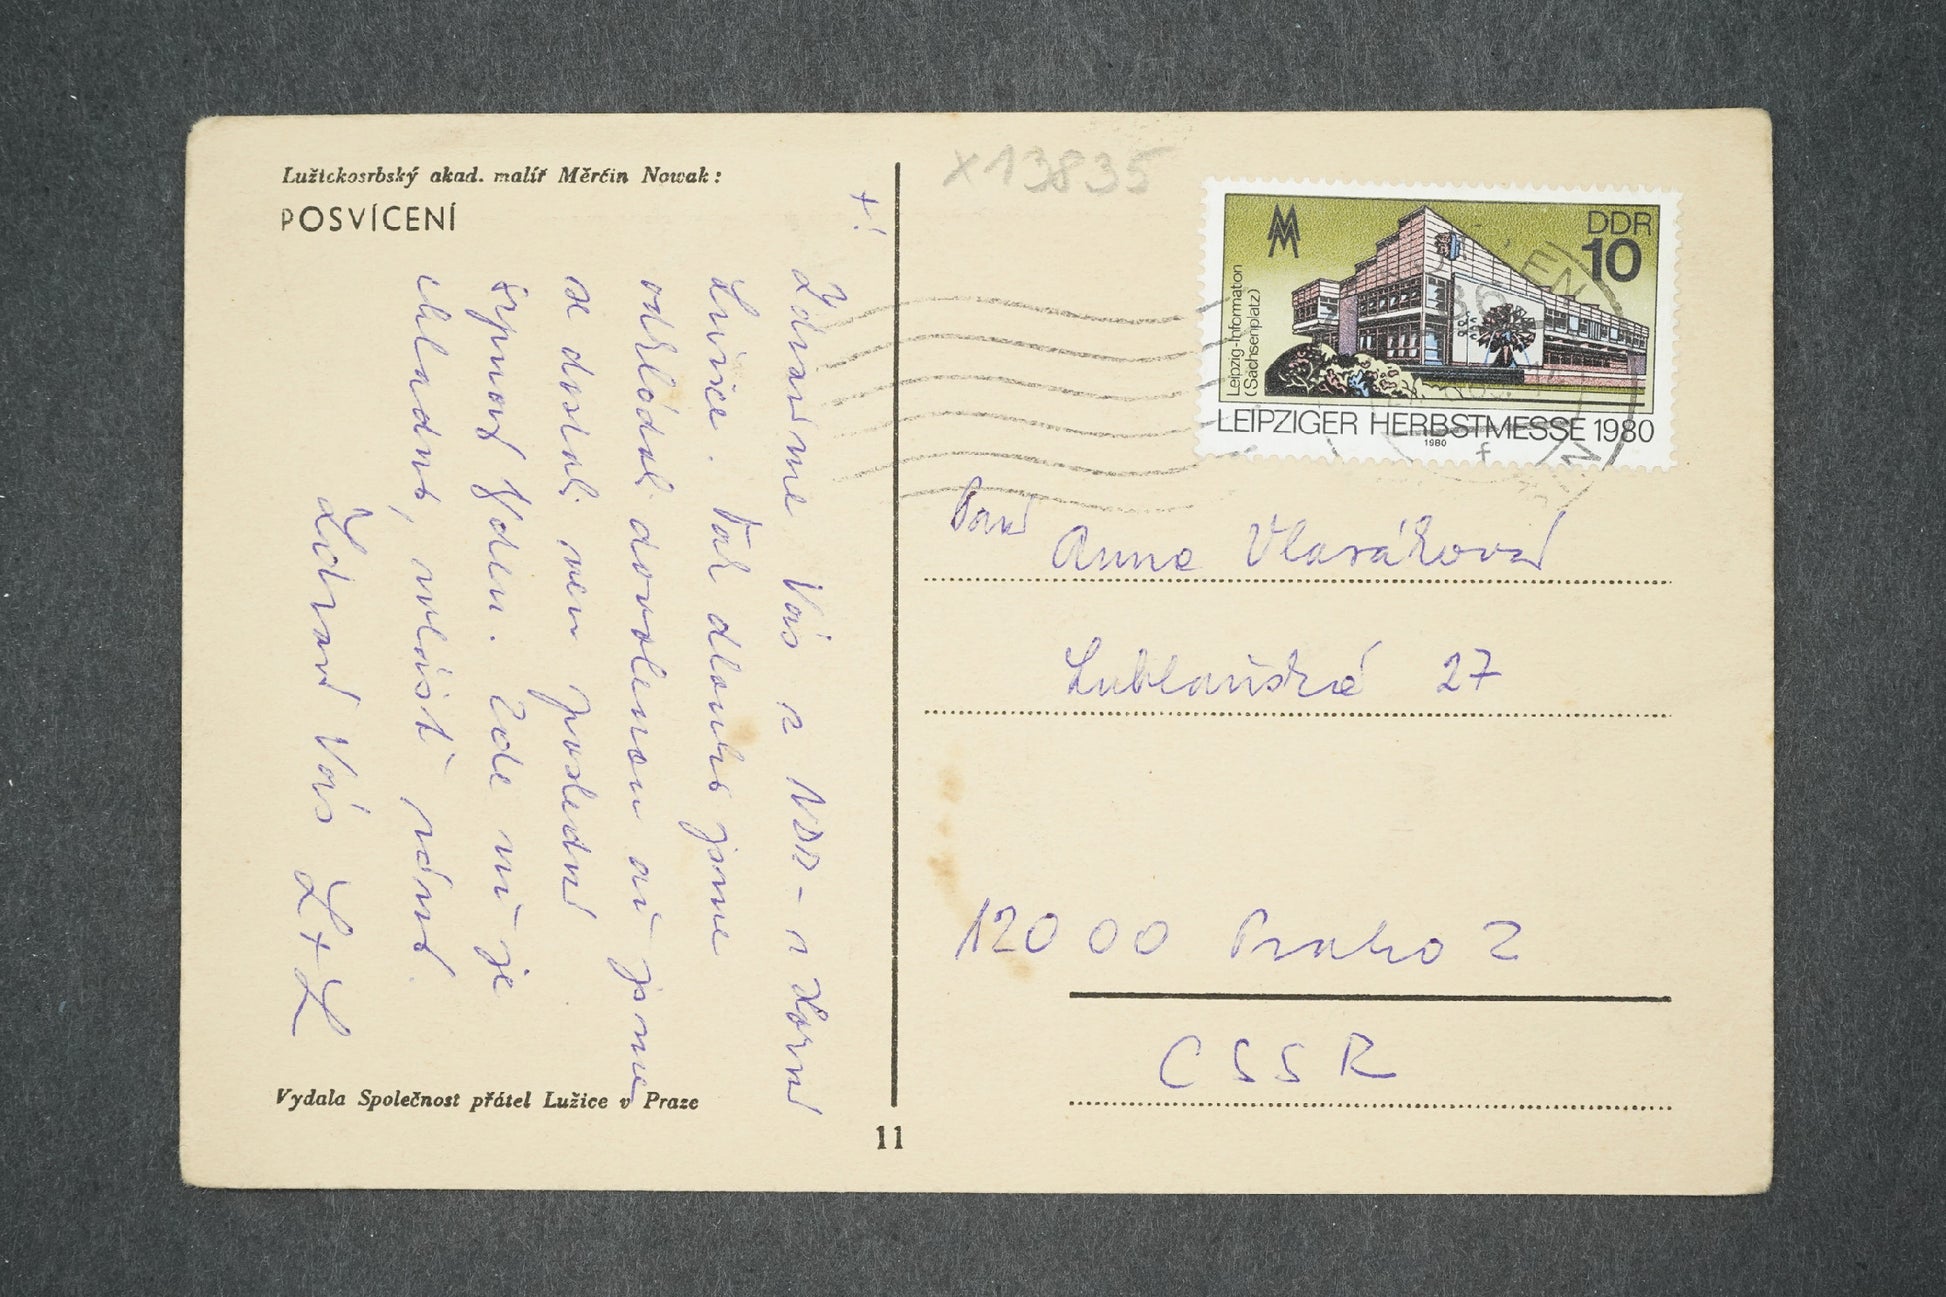 Lužickosrbský akad. malíř Měrćin Nowak:
POSVÍCENÍ
+!
Zdravíme Vás z NDR - z Horní
Lužice. Tak dlouho jsme
odkládali dovolenou až jsme
se dostali ven poslední
srpnový týden. Zde nyní je
chladno, zvlášť ráno.
Zdraví Vás L+L
Vydala Společnost přátel Lužice v Praze
11
x13835
DDR
10
Leipzig-Information
(Sachsenplatz)
LEIPZIGER HERBSTMESSE 1980
1980
f
Paní
Anna Vlasáková
Lublaňská 27
120 00 Praha 2
CSSR